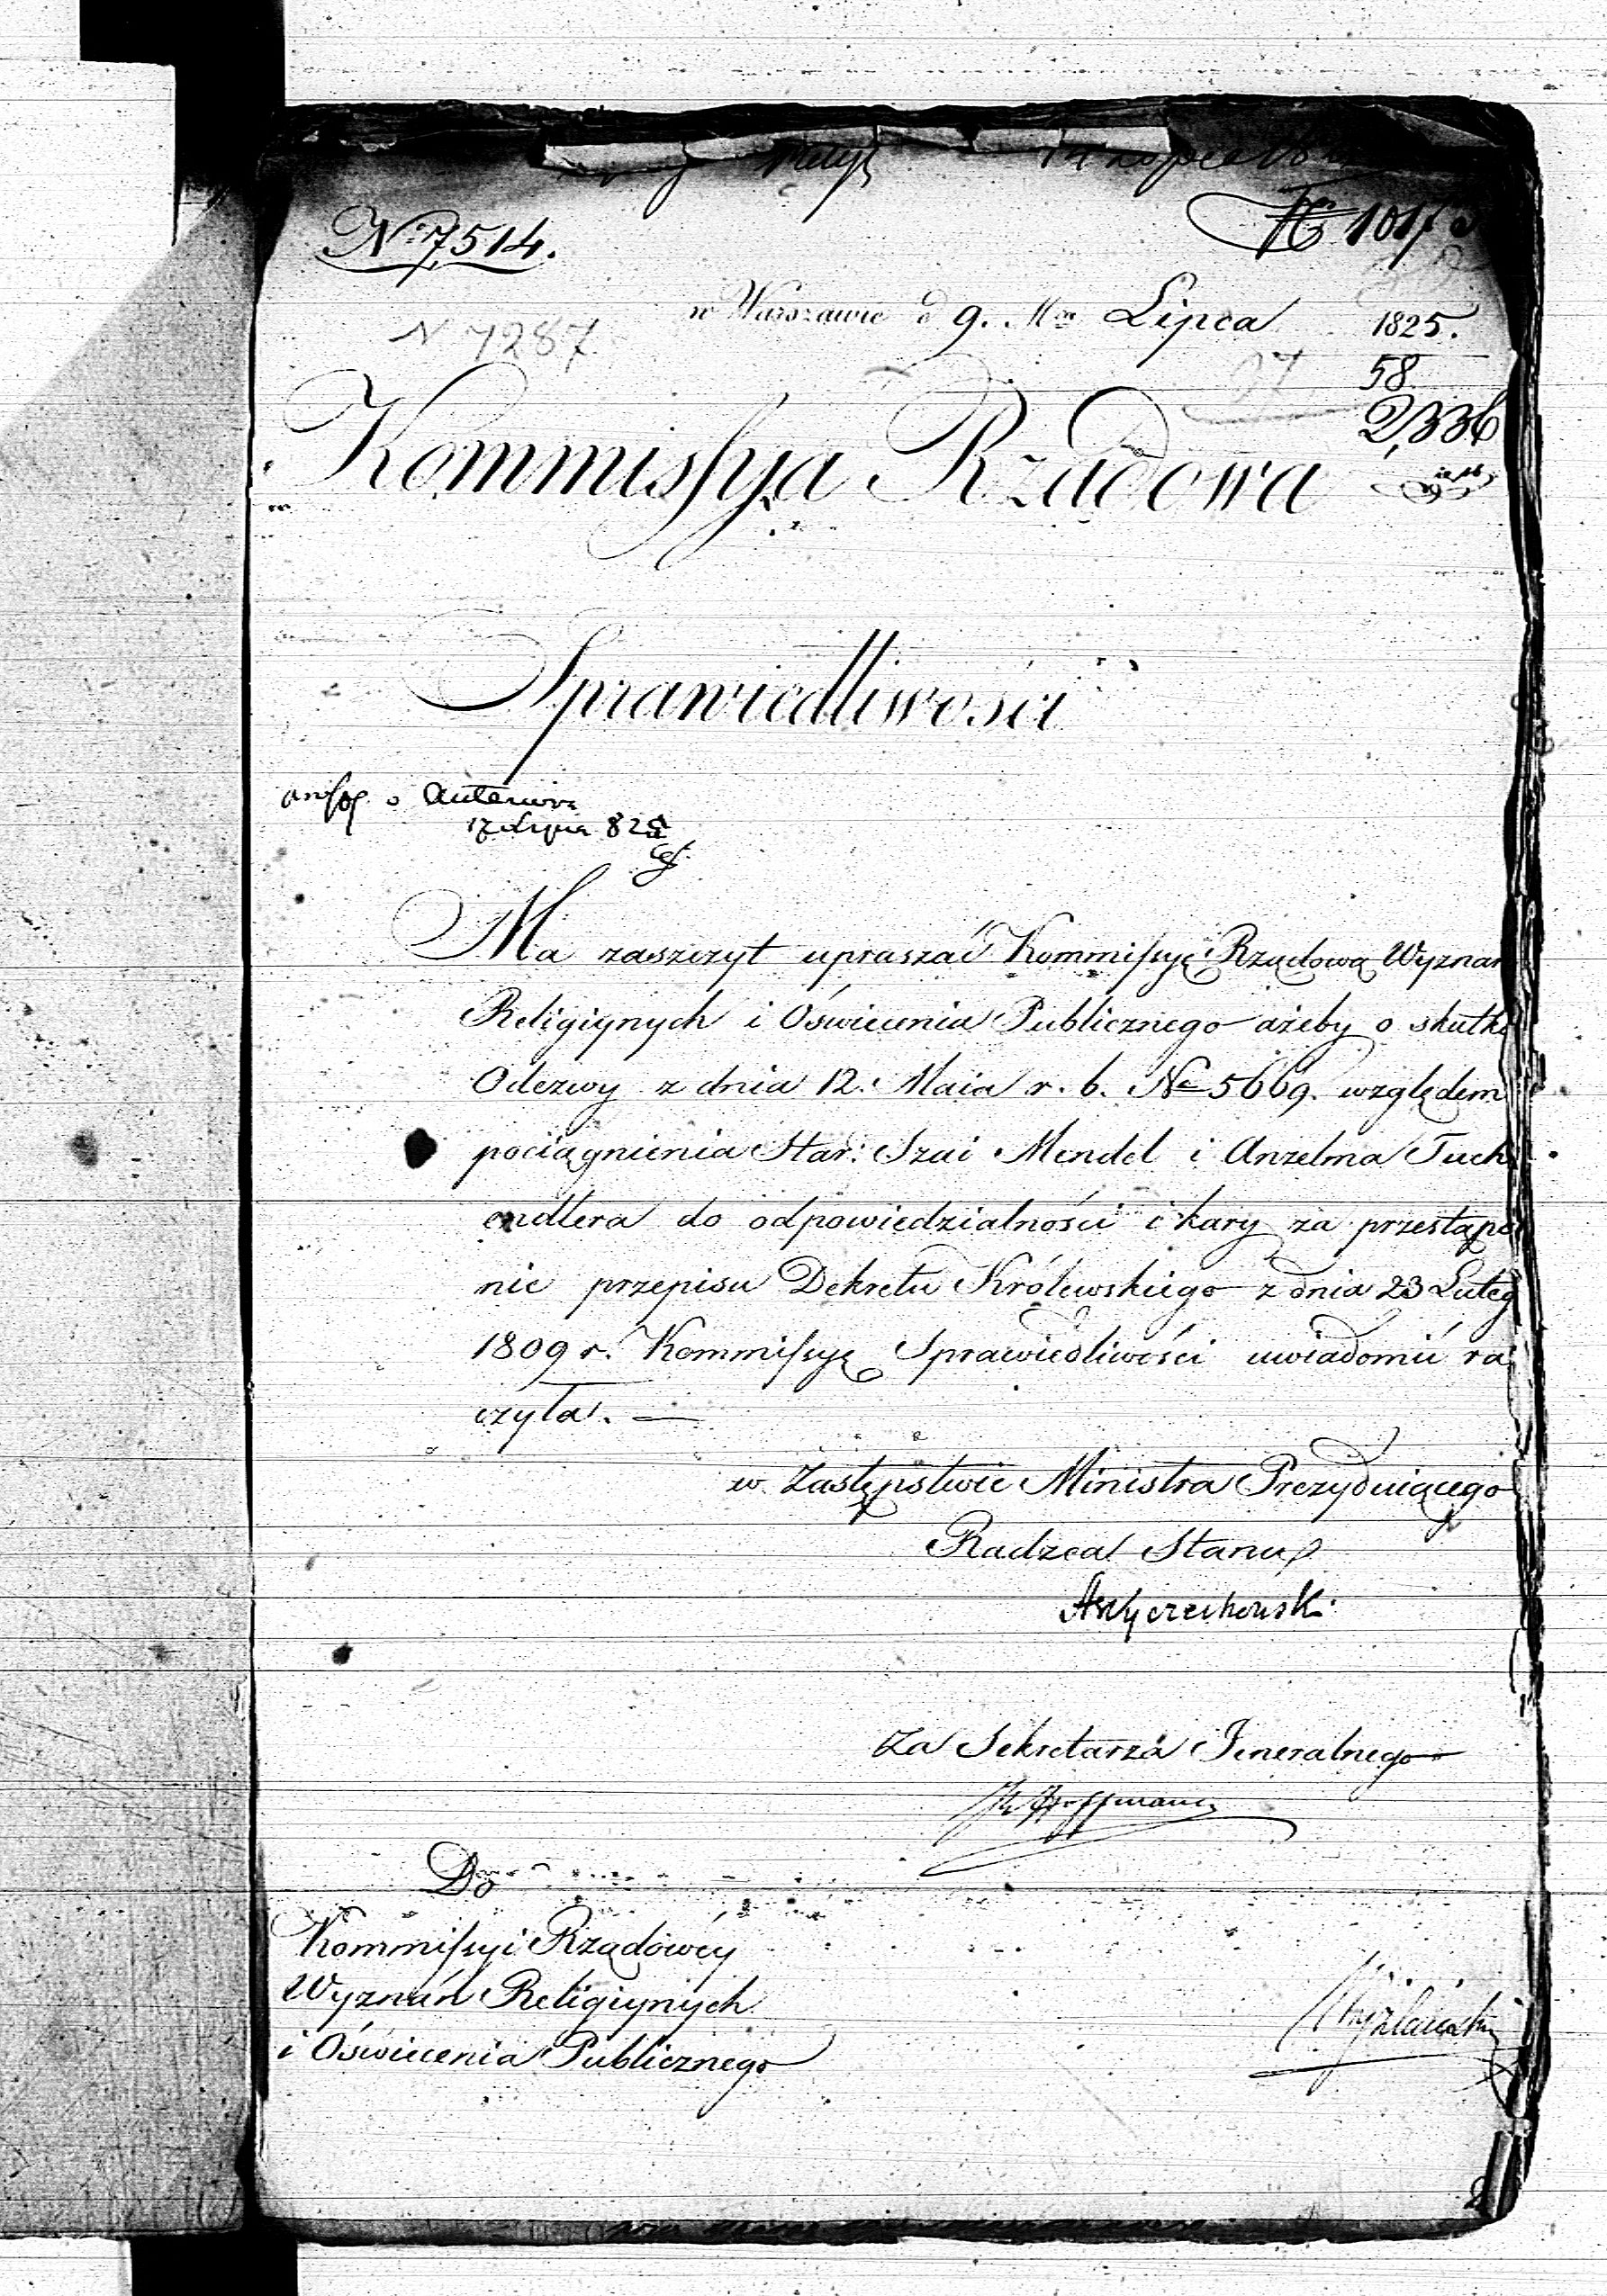 No 7,514.
N 7287
w Warszawie d 9. Mca Lipca 1825.
58
2,336
Kommissyja Rządowa
Sprawiedliwości
o
17 Lipca 825
Ma zaszczyt upraszać Kommissyę Rządową Wyznań
Religiynych i Oświecenia Publicznego ażeby o skutku
Odezwy z dnia 12. Maia r. b. No 5669. względem
pociągnienia Star: Szai Mendel i Anzelma Tuch
endlera do odpowiedzialności i kary za przestąpie
nie przepisu Dekretu Królewskiego z dnia 23 Lutego
1809 r. Kommissyę Sprawiedliwości uwiadomić ra
czyła. —
w Zastępstwie Ministra Prezyduiącego
Radzca Stanu
AWyczechowski
Za Sekretarza Jeneralnego
Hoffmann
Do
Kommissyi Rządowéy
Wyznań Religiynych
i Oświecenia Publicznego